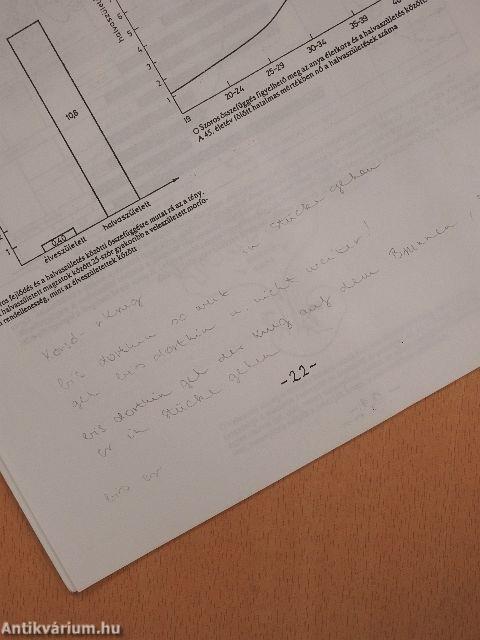 halvaszület
6
5
4
3
2
1
19
20-24
25-29
30-34
35-39
40
○ Szoros összefüggés figyelhető meg az anya életkora és a halvaszületés között.
A 45. életév fölött hatalmas mértékben nő a halvaszületések száma
10,8
1
0,40
élveszületett
halvaszületett
fejlődés és a halvaszületés közötti összefüggésre mutat rá az a tény,
halvaszületett magzatok között 25-ször gyakoribb a veleszületett morfo-
rendellenesség, mint az élveszületettek között
in stücke gehen
Krug
bis dorthin so weit
geh bis dorthin u. nicht weiter!
bis dorthin geh der Krug auf dem Brunnen,
er in stücke gehen
-22-
bis er
Antikvárium.hu